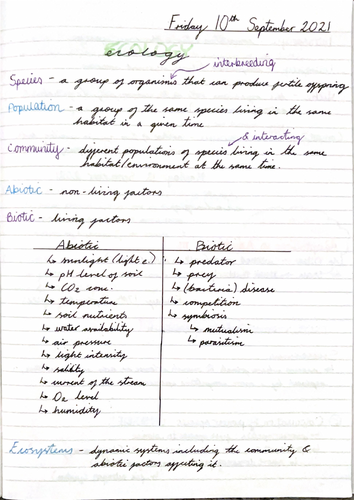 Friday 10th September 2021
ecology
interbreeding
Species - a group of organisms that can produce fertile offspring
Population - a group of the same species living in the same
habitat in a given time
& interacting
Community - different populations of species living in the same
habitat/environment at the same time.
Abiotic - non-living factors
Biotic - living factors
Abiotic
↳ sunlight (light e.)
↳ pH level of soil
↳ CO2 conc.
↳ temperature
↳ soil nutrients
↳ water availability
↳ air pressure
↳ light intensity
↳ salinity
↳ current of the stream
↳ O2 level
↳ humidity
Biotic
↳ predator
↳ prey
↳ (bacteria) disease
↳ competition
↳ symbiosis
↳ mutualism
↳ parasitism
Ecosystems - dynamic systems including the community &
abiotic factors affecting it.